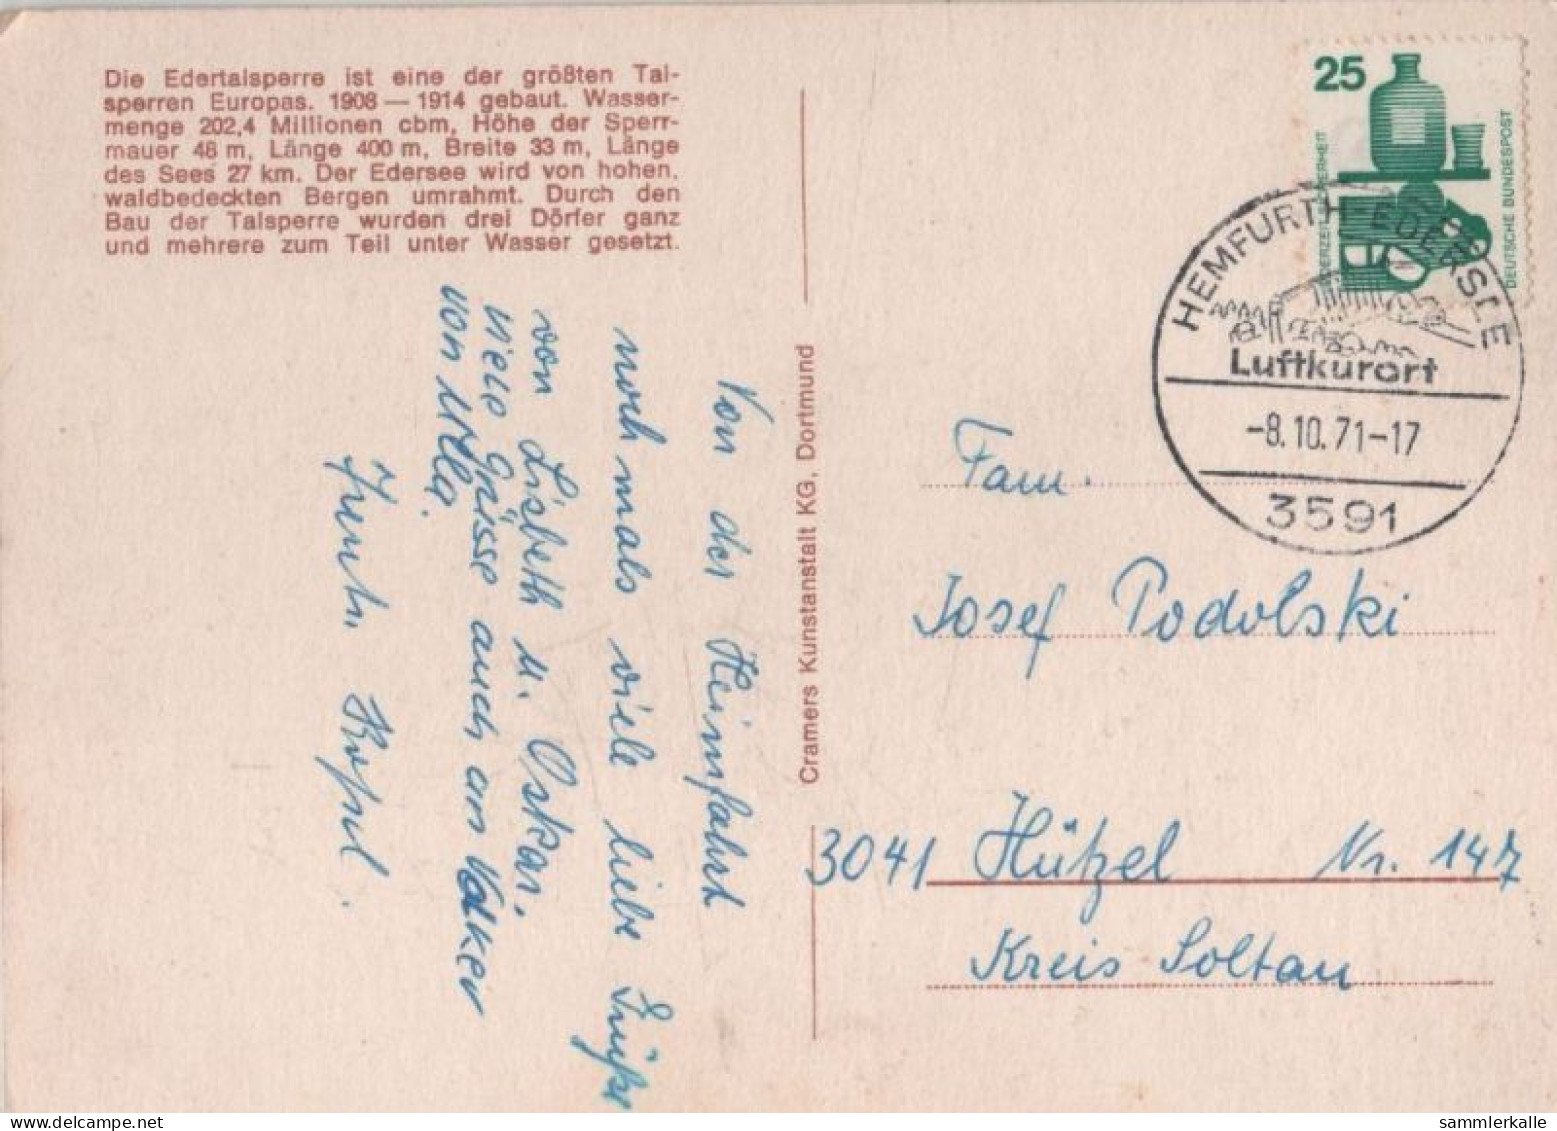 Die Edertalsperre ist eine der größten Tal-
sperren Europas. 1908 — 1914 gebaut. Wasser-
menge 202,4 Millionen cbm, Höhe der Sperr-
mauer 48 m, Länge 400 m, Breite 33 m, Länge
des Sees 27 km. Der Edersee wird von hohen,
waldbedeckten Bergen umrahmt. Durch den
Bau der Talsperre wurden drei Dörfer ganz
und mehrere zum Teil unter Wasser gesetzt.
Von der Heimfahrt
noch mals viele liebe Grüße
von Lisbeth u. Oskar.
Viele Grüsse auch an Volker
von Ulla.
Cramers Kunstanstalt KG, Dortmund
25
DEUTSCHE BUNDESPOST
HEMFURTH-EDERSEE
Luftkurort
-8.10.71-17
3591
Fam.
Josef Podolski
3041 Hützel Nr. 147
Kreis Soltau
sammlerkalle